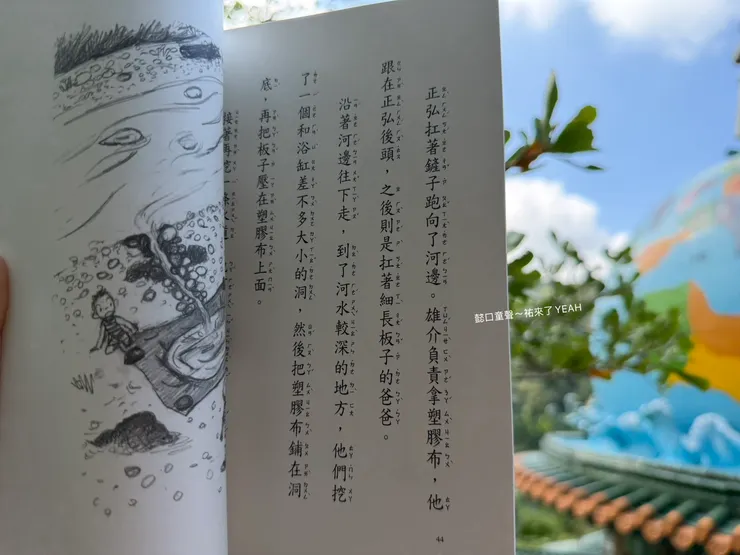 正弘扛著鏟子跑向了河邊。雄介負責拿塑膠布，他
跟在正弘後頭，之後則是扛著細長板子的爸爸。
沿著河邊往下走，到了河水較深的地方，他們挖
了一個和浴缸差不多大小的洞，然後把塑膠布鋪在洞
底，再把板子壓在塑膠布上面。
接著再挖一條水道
44
懿口童聲～祐來了YEAH